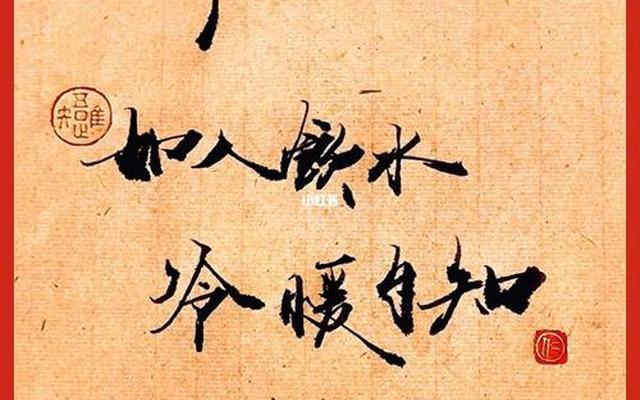 如人飲水
小红书
冷暖自知